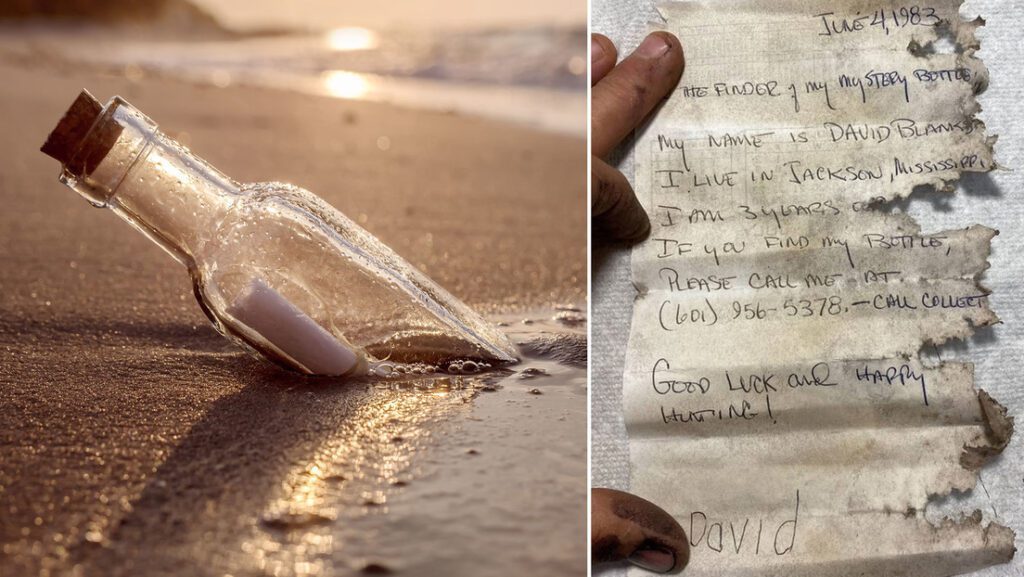 JUNE 4, 1983
THE FINDER of my MYSTERY BOTTLE
MY NAME IS DAVID BLANKS
I LIVE IN JACKSON, MISSISSIPPI,
I AM 3 YEARS
IF YOU FIND MY BOTTLE,
PLEASE CALL ME AT.
(601) 956-5378. – CALL COLLECT
GOOD LUCK and HAPPY
HUNTING!
David